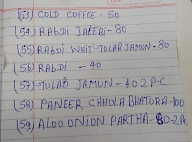 (53) COLD COFFEE - 50
(54) RABDI JALEBI - 80
(55) RABDI WHIT GULAB JAMUN - 80
(56) RABDI - 40
(57) GULAB JAMUN - 40 2 P.C
(58) PANEER CHHOLA BHATURA - 100
(59) ALOO ONION PARTHA - 80 - 2 Pc